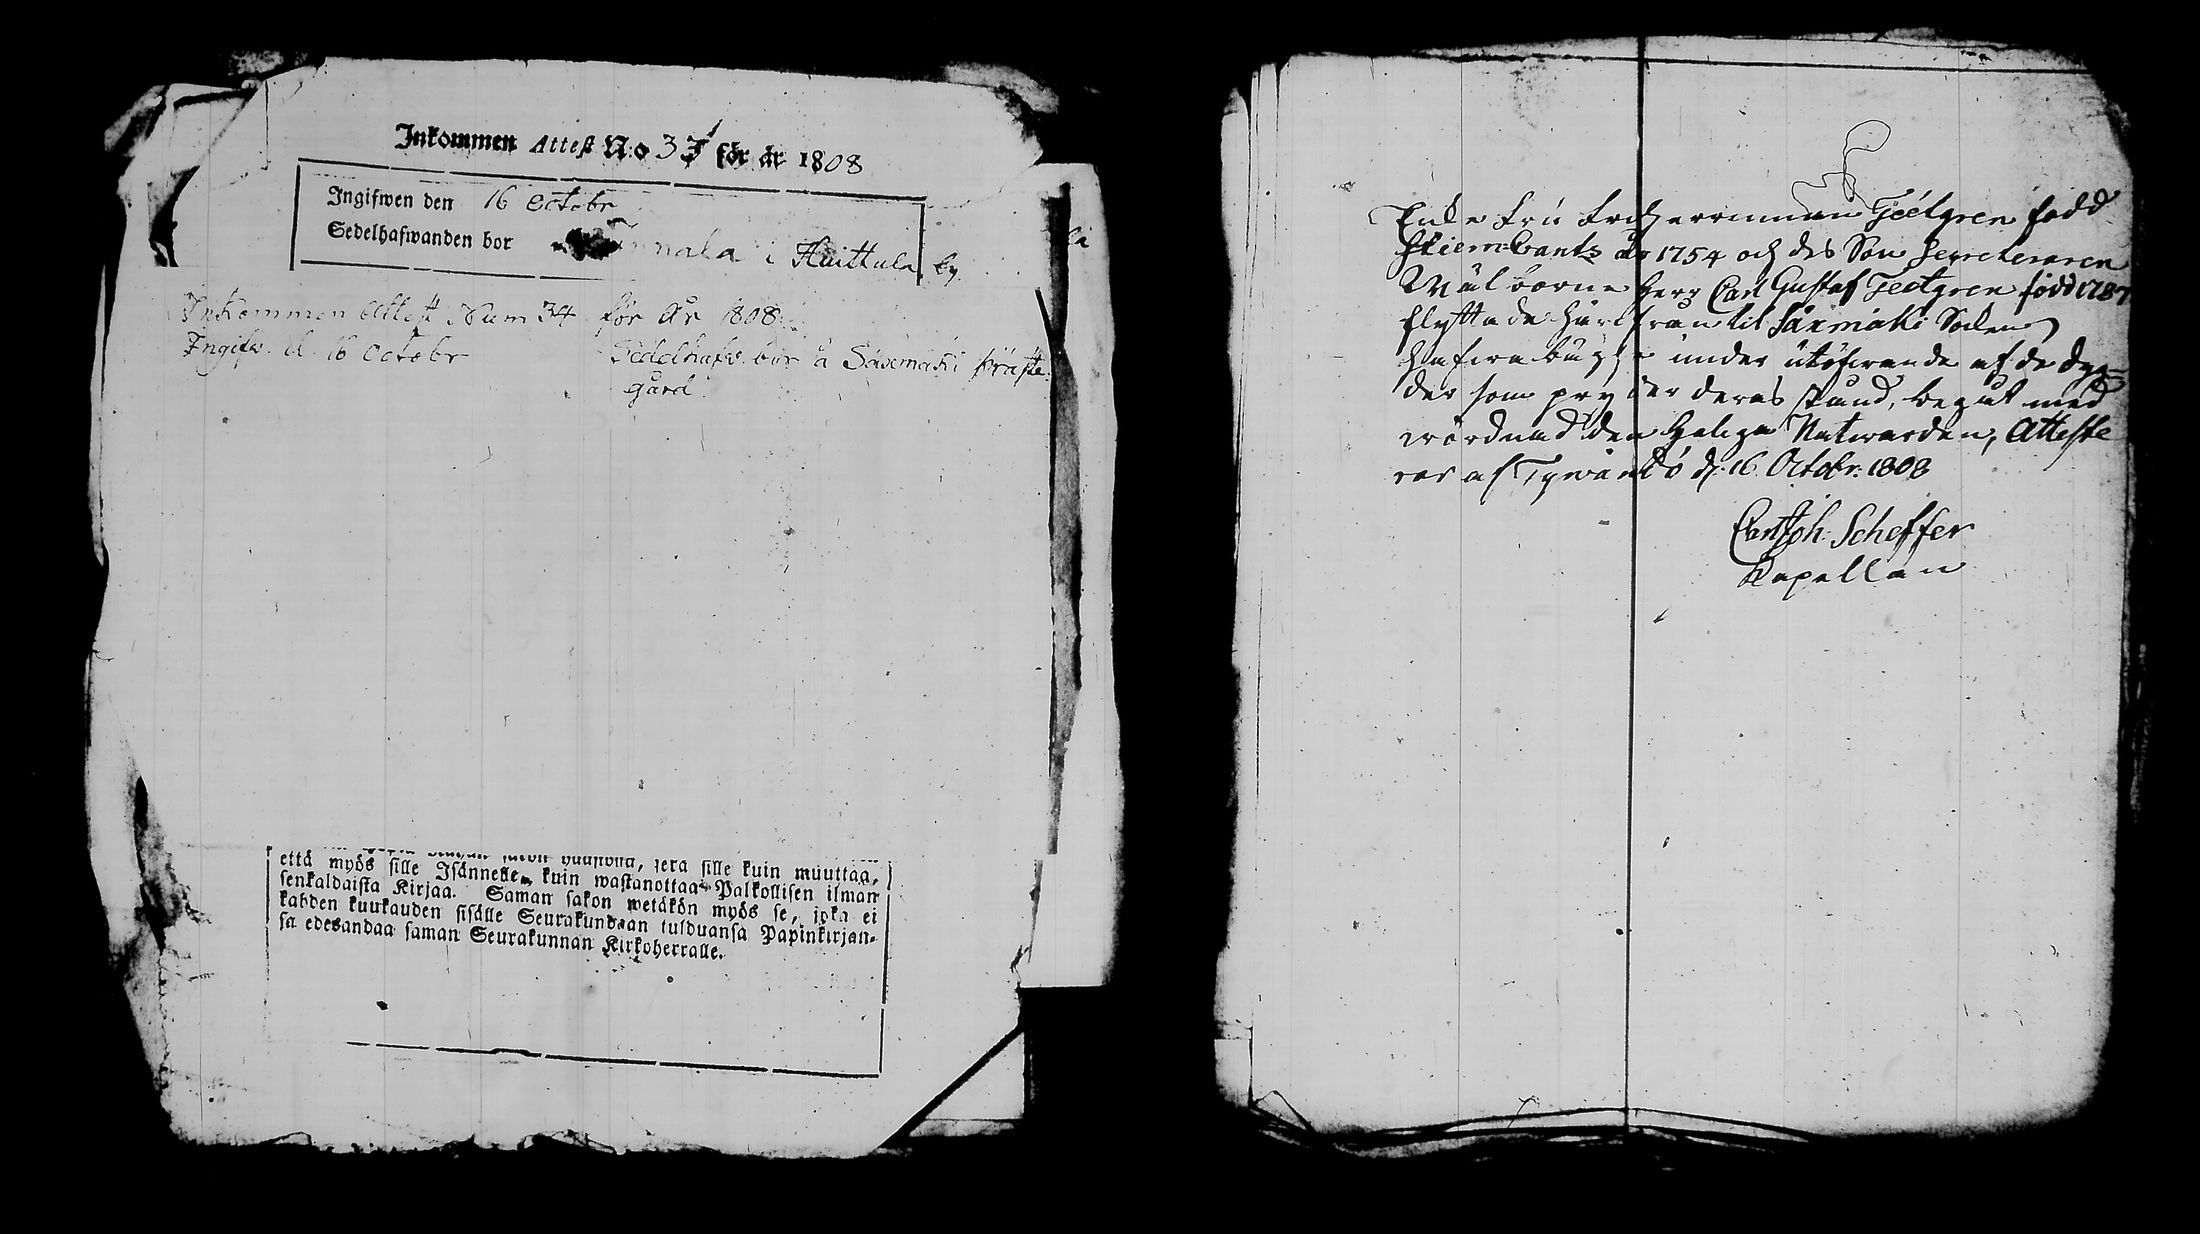 Inkommen Attest N:o 33 för år 1808
Ingifwen den 16 Octobr
Sedelhafwanden bor i Huittula by.
Inkommen Attest Num 34 för År 1808.
Ingifv. d. 16 Octobr Sedelhafv. bor å Saxmäki präste
gård.
sille kuin muuttaa,
että myös sille Isännelle, kuin wastanottaa Palkollisen ilman
senkaldaista Kirjaa. Saman sakon wetäkön myös se, joka ei
kahden kuukauden sisälle Seurakundaan tulduansa Papinkirjan-
sa edesandaa saman Seurakunnan Kirkoherralle.
Enke Fru Geetgren född
år 1754 och des Son Secreteraren
Wälborne Herr Carl Gustaf Geetgren född 1787
flyttade härifrån til Säxmäki Soken
hafwa bägge under utöfwande af de dyg-
der som pryder deras stånd, begåt med
wördnad den Heliga Natwarden, Atteste
rar af Tyrwändö d. 16 Octobr. 1808
Carl Joh. Scheffer
Kapellan